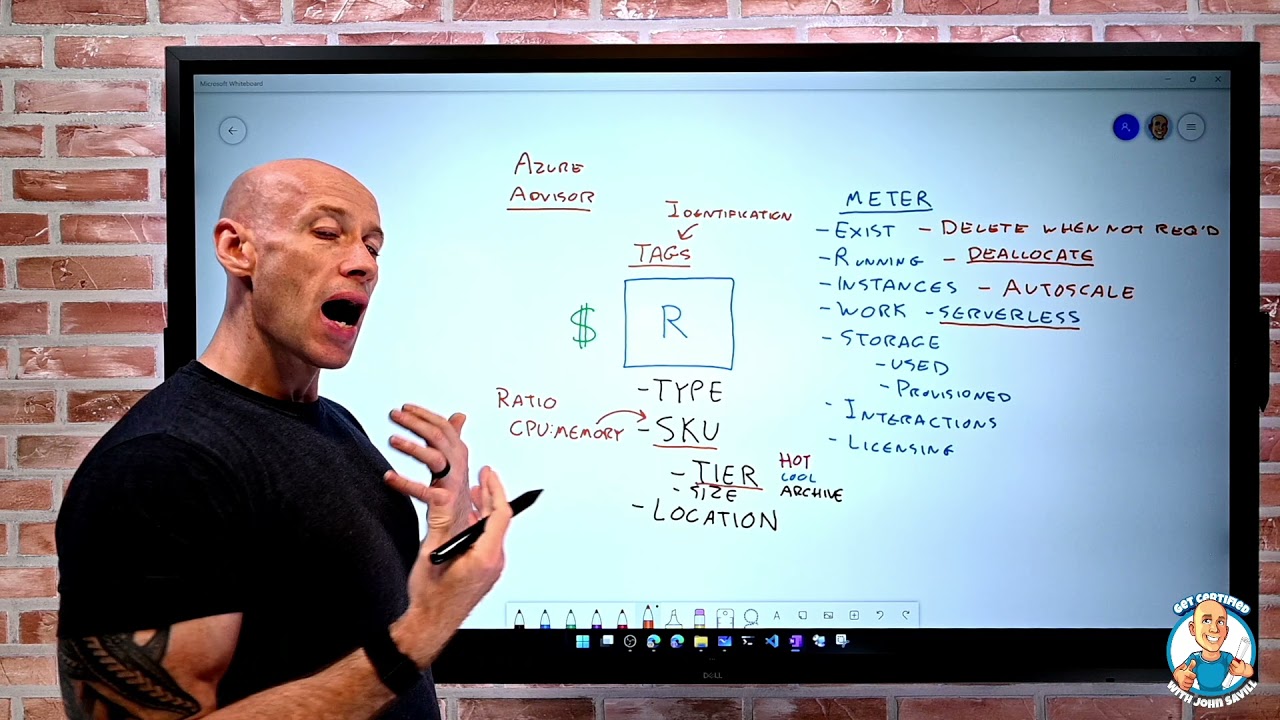 Microsoft Whiteboard
AZURE
ADVISOR
IDENTIFICATION
TAGS
$
R
- TYPE
RATIO
CPU:MEMORY
- SKU
- TIER
HOT
COOL
ARCHIVE
- SIZE
- LOCATION
METER
- EXIST - DELETE WHEN NOT REQ'D
- RUNNING - DEALLOCATE
- INSTANCES - AUTOSCALE
- WORK - SERVERLESS
- STORAGE
- USED
- PROVISIONED
- INTERACTIONS
- LICENSING
DELL
GET CERTIFIED
WITH JOHN SAVILL